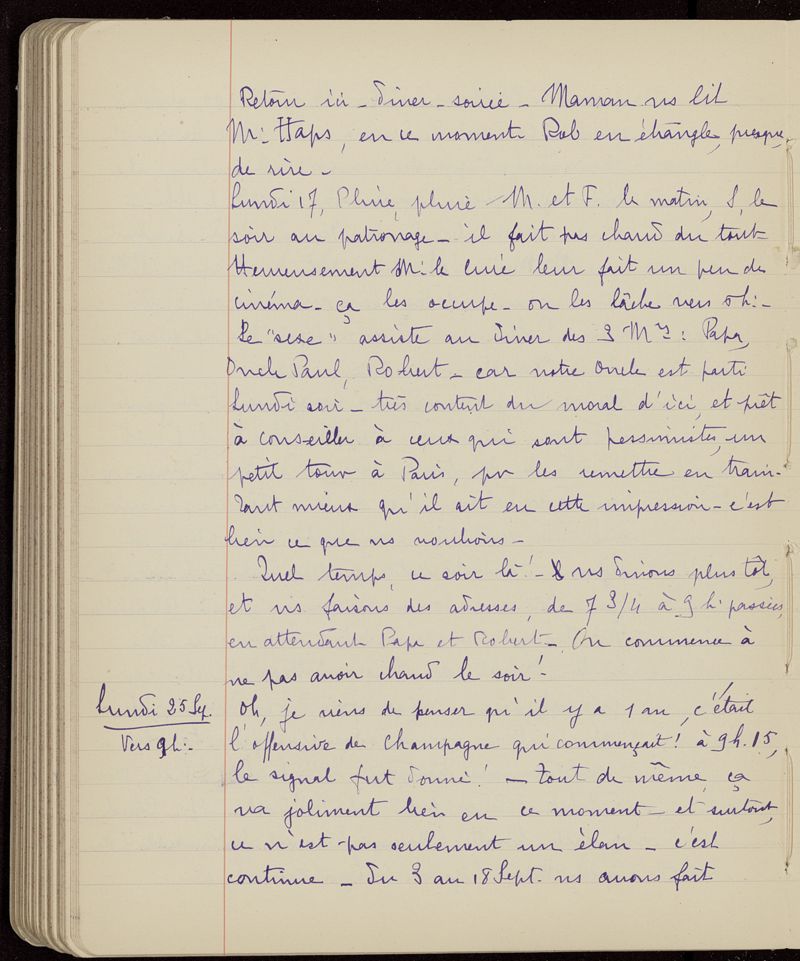 Retour ici - dîner - soirée - Maman ns lit
Mr: Haps, en ce moment Rob en étrangle, presque,
de rire -
Lundi 17, Pluie, pluie - M. et F. le matin, S, le
soir au patronage - il fait pas chaud du tout
Heureusement M: le Curé leur fait un peu de
cinéma - ça les occupe - on les lâche vers 5h: -
Le "sexe" assiste au dîner des 3 Mrs: Papa,
Oncle Paul, Robert - car notre Oncle est parti
Lundi soir - très content du moral d'ici, et prêt
à conseiller à ceux qui sont pessimistes, un
petit tour à Paris, pr les remettre en train -
Tant mieux qu'il ait eu cette impression - c'est
bien ce que ns voulions -
Quel temps, ce soir là! - ns dînons plus tôt,
et ns faisons des adresses, de 7 3/4 à 9 h: passées,
en attendant Papa et Robert - On commence à
ne pas avoir chaud le soir!
Lundi 25 Sep. Oh, je viens de penser qu'il y a 1 an, c'était
Vers 9h: - l'offensive de Champagne qui commençait! à 9h.15,
le signal fut donné! - tout de même, ça
va joliment bien en ce moment - et surtout,
ce n'est pas seulement un élan - c'est
continue - du 3 au 18 Sept. ns avons fait